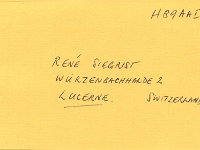 HB9AAI
RENÉ SIEGRIST
WÜRZENBACHHALDE 2
LUCERNE. SWITZERLAND